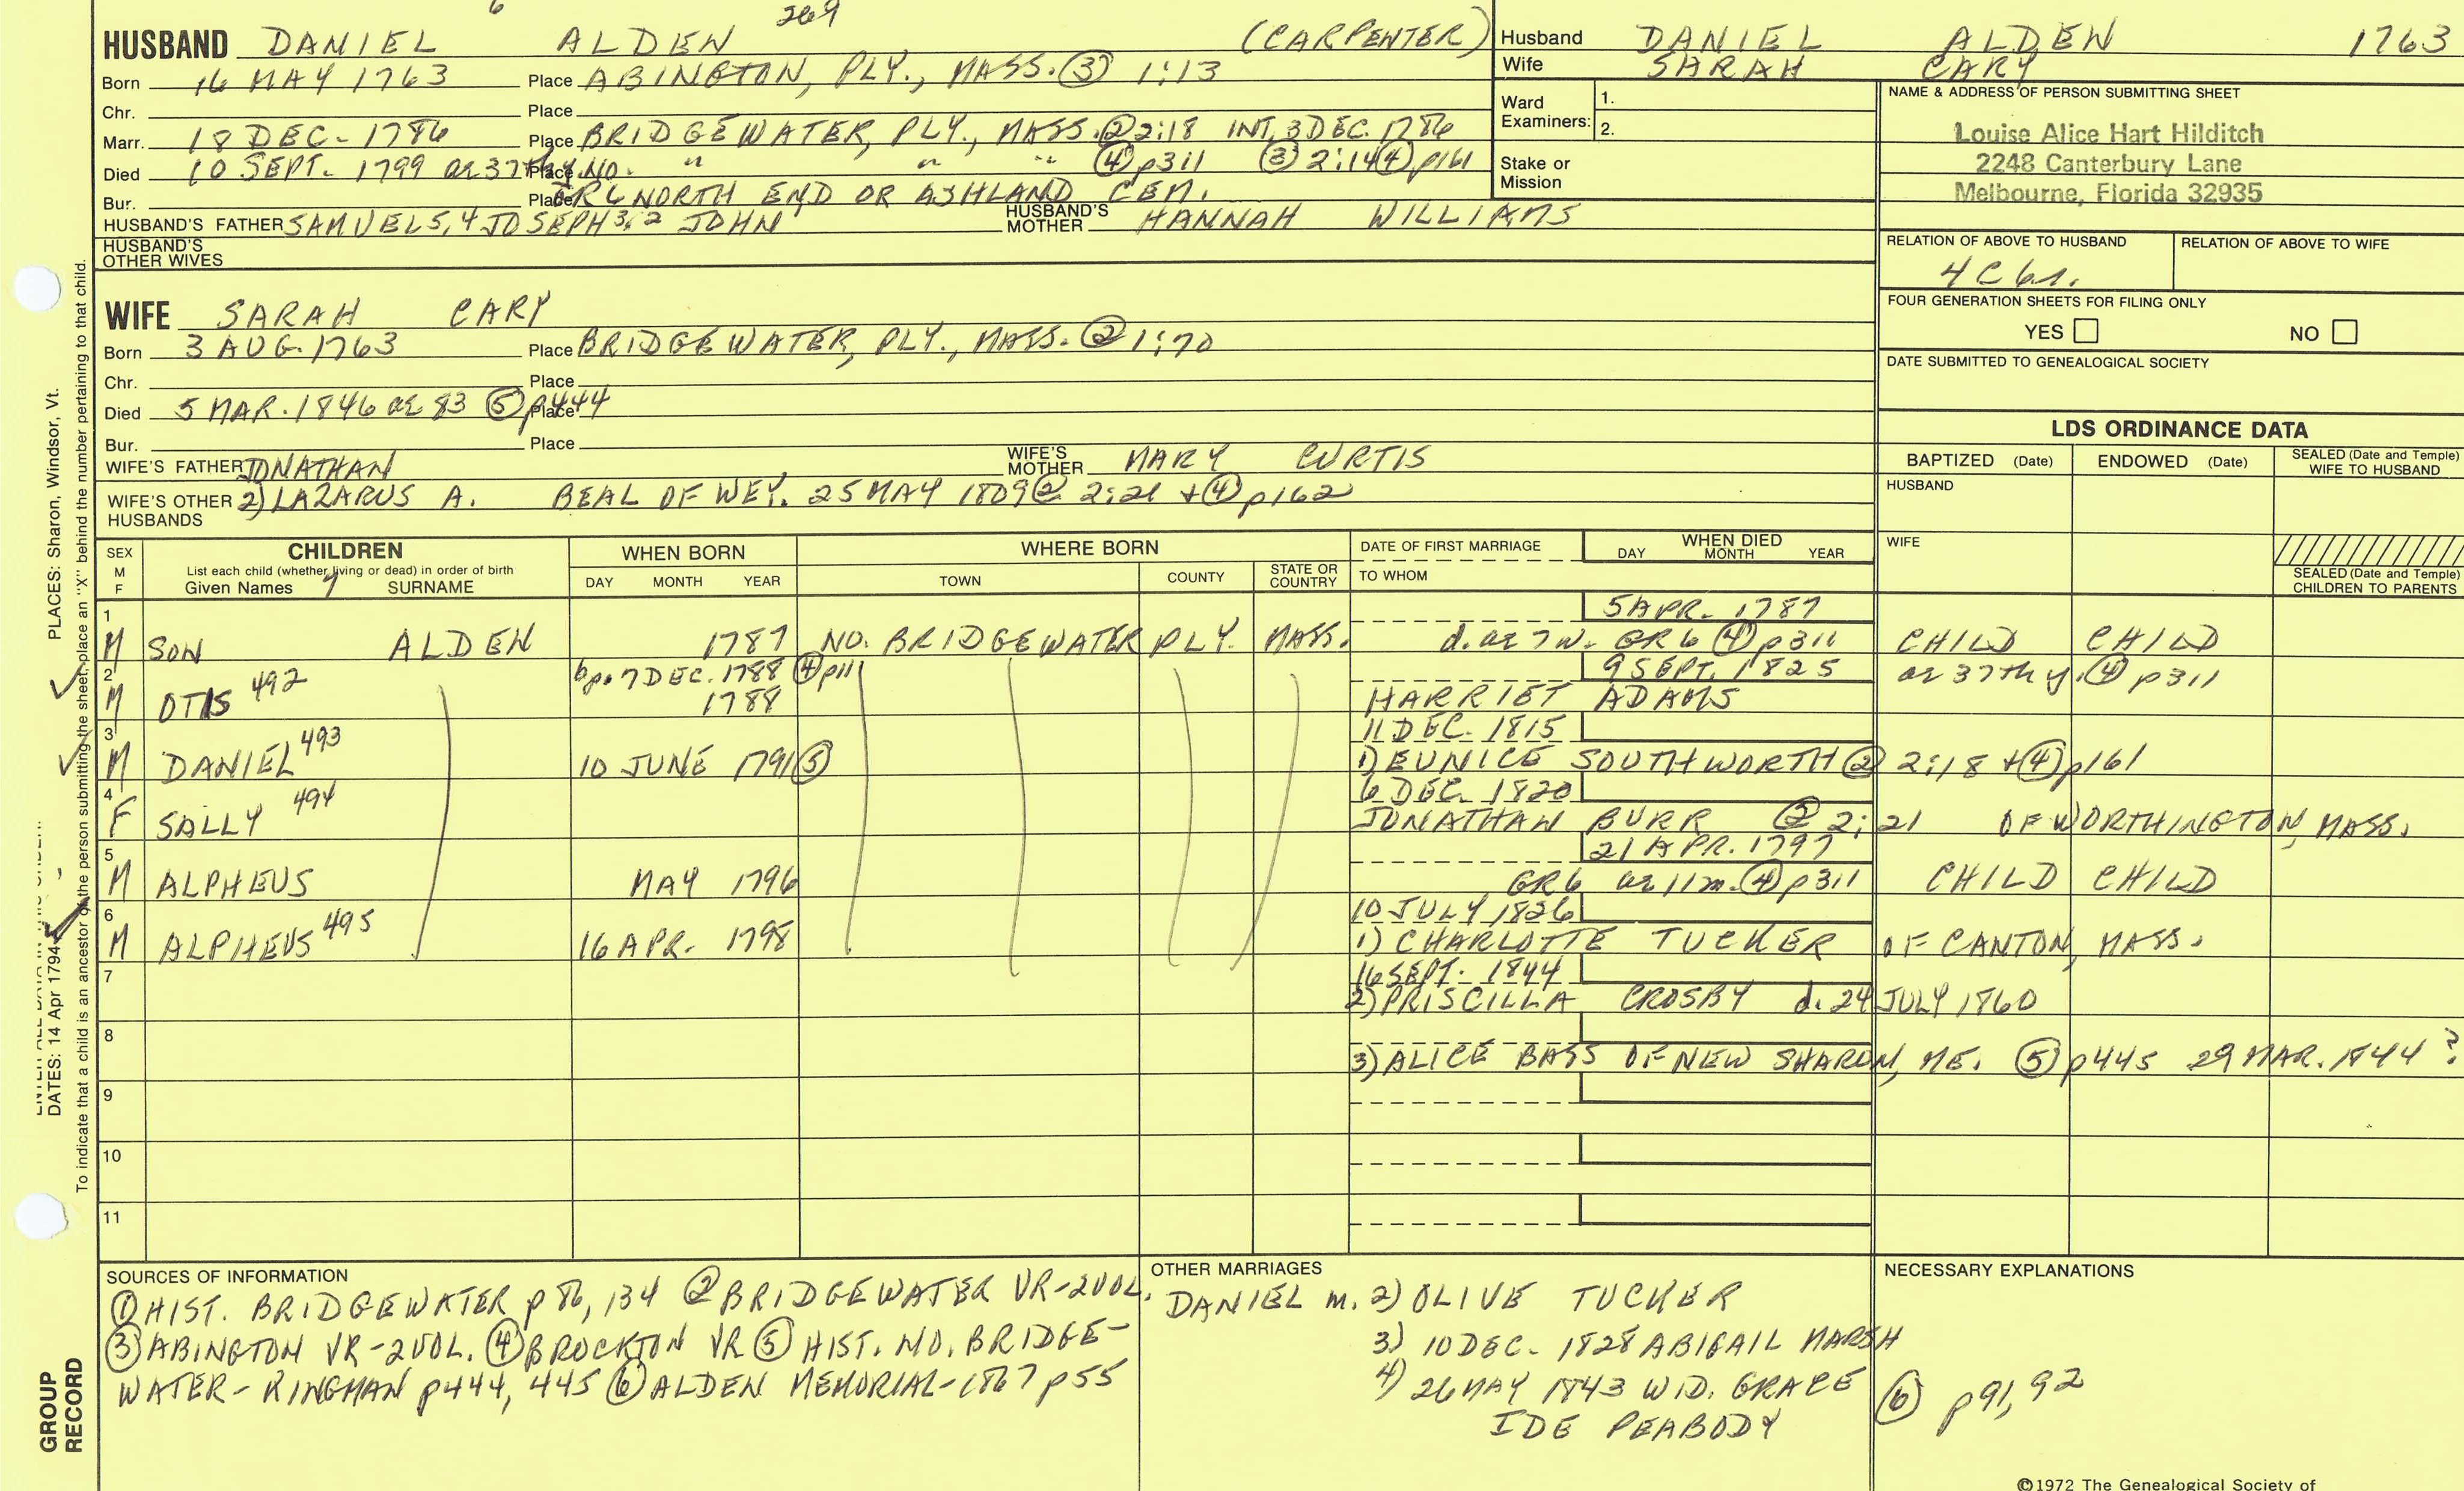 6 269
HUSBAND DANIEL ALDEN (CARPENTER)
Born 16 MAY 1763 Place ABINGTON, PLY., MASS. ③ 1:13
Chr. Place
Marr. 18 DEC. 1786 Place BRIDGEWATER, PLY., MASS. ② 2:18 INT. 3 DEC. 1786
Died 10 SEPT. 1799 ae 37th y. Place NO. " " " ④ p311 ③ 2:14 ④ p161
Bur. Place GR6 NORTH END OR ASHLAND CEM.
HUSBAND'S FATHER SAMUEL5,4 JOSEPH3,2 JOHN HUSBAND'S MOTHER HANNAH WILLIAMS
HUSBAND'S OTHER WIVES
Husband DANIEL ALDEN 1763
Wife SARAH CARY
Ward Examiners: 1. 2.
Stake or Mission
NAME & ADDRESS OF PERSON SUBMITTING SHEET
Louise Alice Hart Hilditch
2248 Canterbury Lane
Melbourne, Florida 32935
RELATION OF ABOVE TO HUSBAND RELATION OF ABOVE TO WIFE
4C 6r.
FOUR GENERATION SHEETS FOR FILING ONLY
YES NO
DATE SUBMITTED TO GENEALOGICAL SOCIETY
WIFE SARAH CARY
Born 3 AUG. 1763 Place BRIDGEWATER, PLY., MASS. ② 1:70
Chr. Place
Died 5 MAR. 1846 ae 83 ⑤ p444 Place
Bur. Place
WIFE'S FATHER JONATHAN WIFE'S MOTHER MARY CURTIS
WIFE'S OTHER HUSBANDS 2) LAZARUS A. BEAL OF WEY. 25 MAY 1809 ② 2:21 + ④ p162
LDS ORDINANCE DATA
BAPTIZED (Date) ENDOWED (Date) SEALED (Date and Temple) WIFE TO HUSBAND
HUSBAND
WIFE
SEALED (Date and Temple) CHILDREN TO PARENTS
SEX M F
CHILDREN
List each child (whether living or dead) in order of birth
Given Names 7 SURNAME
WHEN BORN
DAY MONTH YEAR
WHERE BORN
TOWN COUNTY STATE OR COUNTRY
DATE OF FIRST MARRIAGE
TO WHOM
WHEN DIED
DAY MONTH YEAR
1 5 APR. 1787
M SON ALDEN 1787 NO. BRIDGEWATER PLY. MASS. d. ae 7 w. GR6 ④ p311 CHILD CHILD
2 bp. 7 DEC. 1788 ④ p11 9 SEPT. 1825 ae 37th y. ④ p311
M OTIS 492 1788 HARRIET ADAMS
3 11 DEC. 1815
M DANIEL 493 10 JUNE 1791 ⑤ 1) EUNICE SOUTHWORTH ② 2:18 + ④ p161
4 6 DEC. 1820
F SALLY 494 JONATHAN BURR ② 2:21 OF WORTHINGTON, MASS.
5 21 APR. 1797
M ALPHEUS MAY 1796 GR6 ae 11 m. ④ p311 CHILD CHILD
6 10 JULY 1826
M ALPHEUS 495 16 APR. 1798 1) CHARLOTTE TUCKER OF CANTON, MASS.
7 16 SEPT. 1844
2) PRISCILLA CROSBY d. 24 JULY 1860
8
3) ALICE BASS OF NEW SHARON, ME. ⑤ p445 29 MAR. 1844 ?
9
10
11
SOURCES OF INFORMATION
① HIST. BRIDGEWATER p 86, 134 ② BRIDGEWATER VR-2 VOL.
③ ABINGTON VR-2 VOL. ④ BROCKTON VR ⑤ HIST. NO. BRIDGE-
WATER - KINGMAN p444, 445 ⑥ ALDEN MEMORIAL-1867 p55
OTHER MARRIAGES
DANIEL m. 2) OLIVE TUCKER
3) 10 DEC. 1828 ABIGAIL MARSH
4) 26 MAY 1843 WID. GRACE
IDE PEABODY
NECESSARY EXPLANATIONS
⑥ p91, 92
©1972 The Genealogical Society of
PLACES: Sharon, Windsor, Vt.
DATES: 14 Apr 1794
To indicate that a child is an ancestor of the person submitting the sheet, place an "X" behind the number pertaining to that child.
GROUP
RECORD